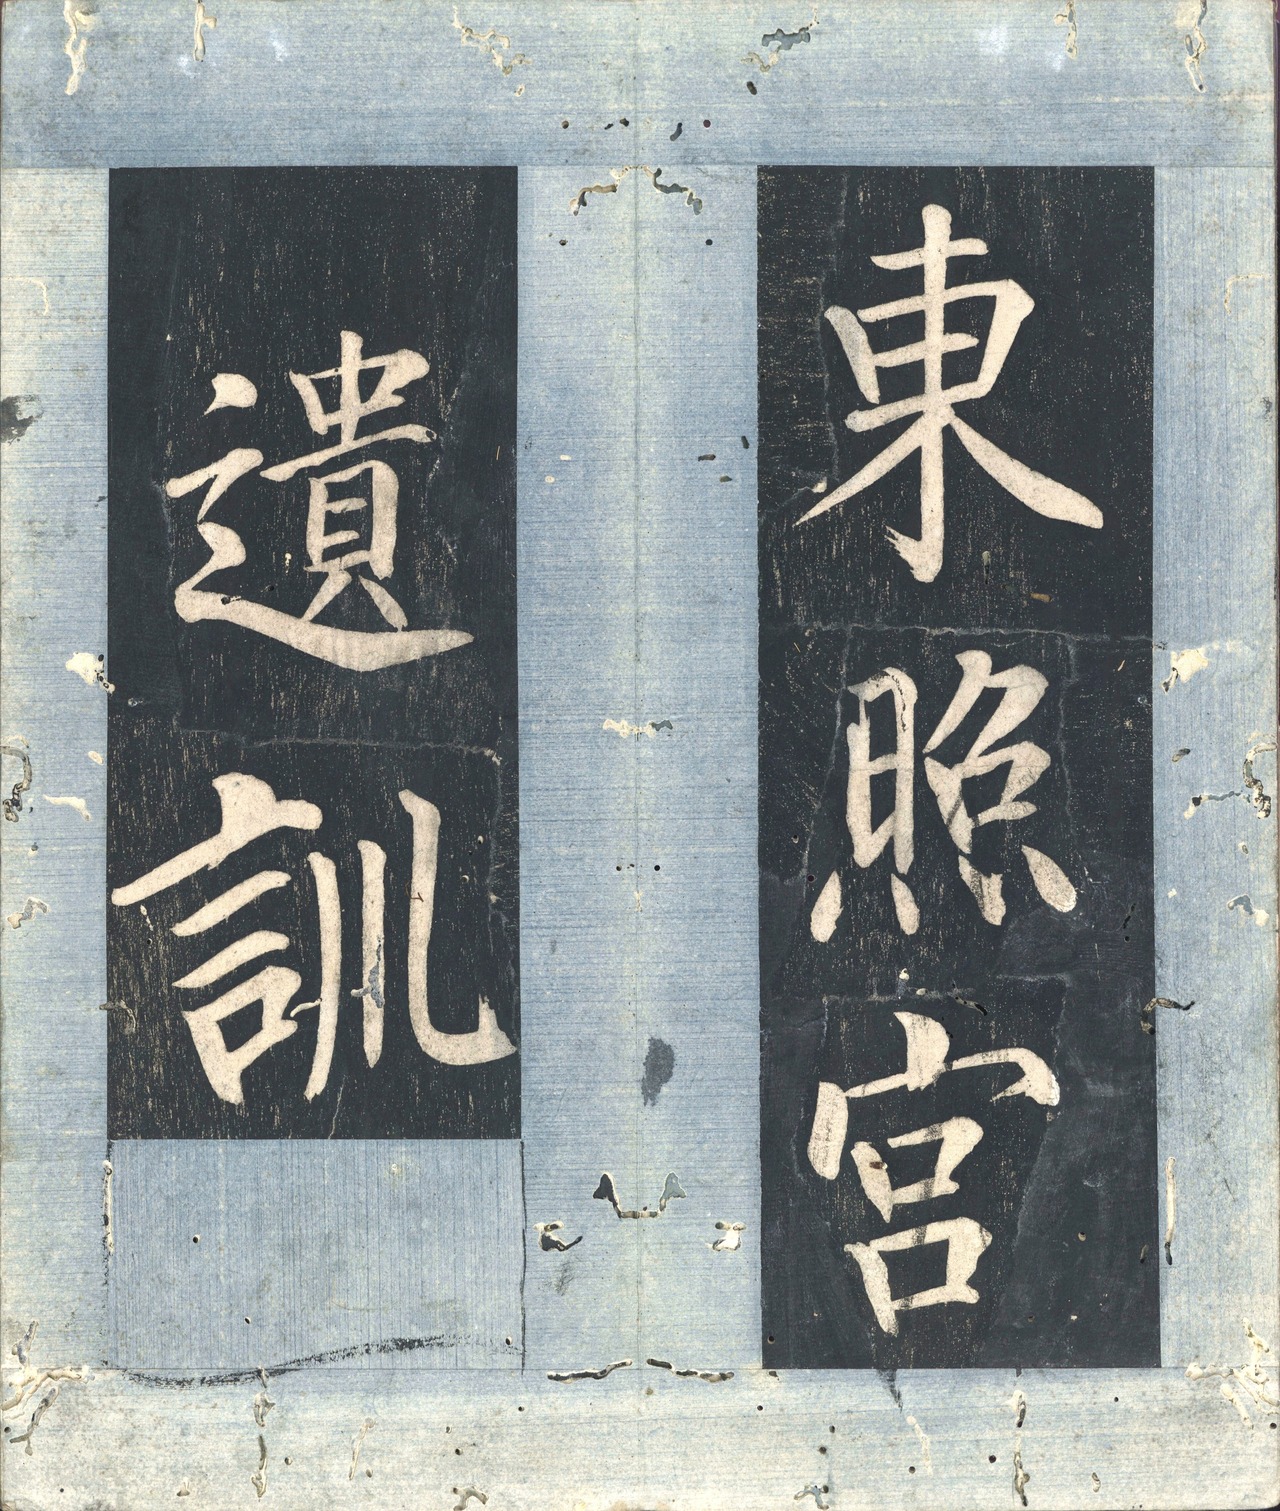 東照宮
遺訓